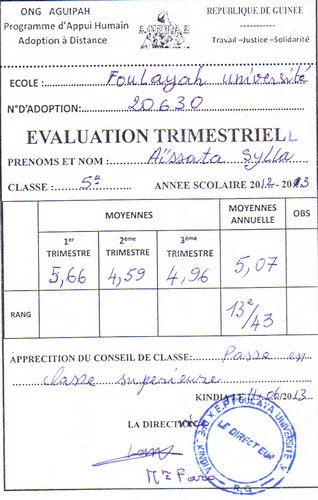 ONG AGUIPAH REPUBLIQUE DE GUINEE
Programme d'Appui Humain
Adoption à Distance Travail –Justice –Solidarité
ECOLE : Foulayah Université
N°D'ADOPTION: 20630
EVALUATION TRIMESTRIELL
PRENOMS ET NOM : Aïssata Sylla
CLASSE : 5e ANNEE SCOLAIRE 2012- 2013
MOYENNES MOYENNES ANNUELLE OBS
1er TRIMESTRE 2ème TRIMESTRE 3ème TRIMESTRE
5,66 4,59 4,96 5,07
RANG 13e/43
APPRECITION DU CONSEIL DE CLASSE: Passe en
classe superieure
KINDIA LE 11/06/2013
LA DIRECTION
LE DIRECTEUR
KINDIA
R.G